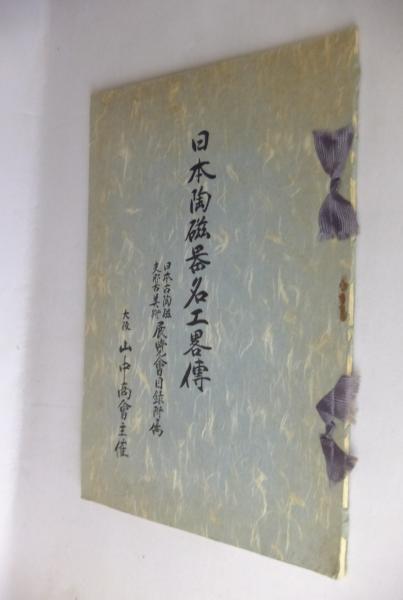 日本陶磁器名工畧傳
日本古陶磁
支那古美術
展覽會目録附傳
大阪 山中商會主催